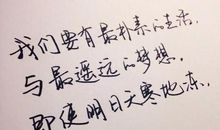 我们要有最朴素的生活,
与最遥远的梦想.
即使明日天寒地冻.